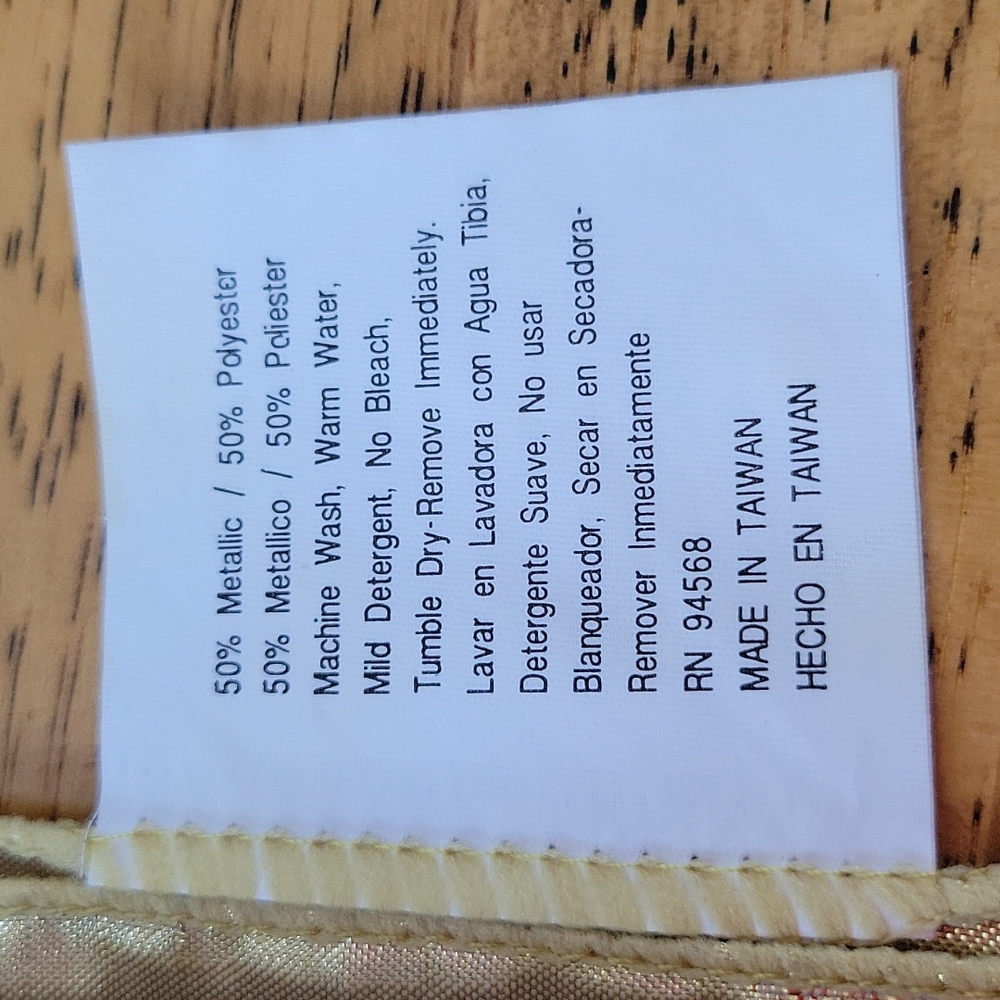 50% Metallic / 50% Polyester
50% Metallico / 50% Poliester
Machine Wash, Warm Water,
Mild Detergent, No Bleach,
Tumble Dry-Remove Immediately.
Lavar en Lavadora con Agua Tibia,
Detergente Suave, No usar
Blanqueador, Secar en Secadora-
Remover Inmediatamente
RN 94568
MADE IN TAIWAN
HECHO EN TAIWAN